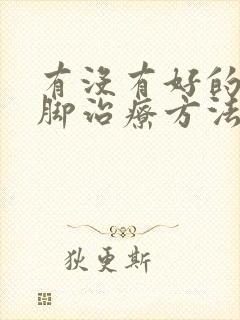 有没有好的
脚治疗方法
狄更斯